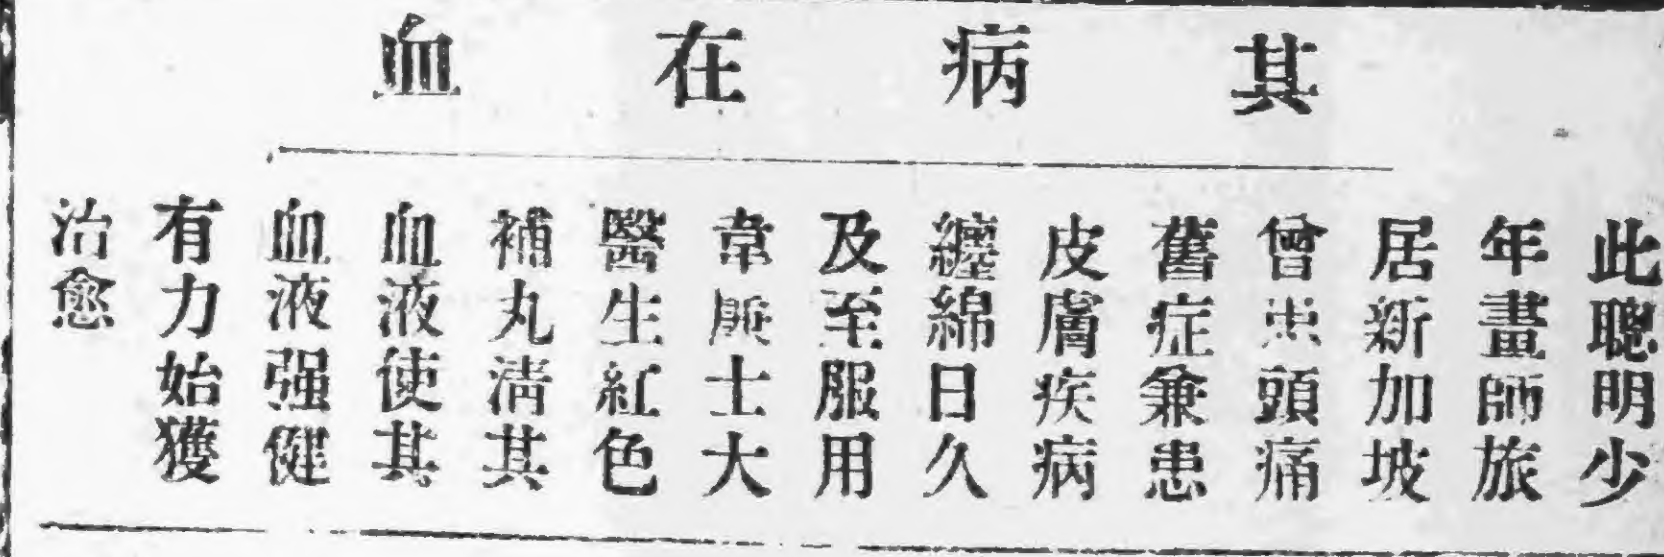 其病在血
此聰明少
年畫師旅
居新加坡
曾患頭痛
舊症兼患
皮膚疾病
纏綿日久
及至服用
韋廉士大
醫生紅色
補丸清其
血液使其
血液强健
有力始獲
治愈